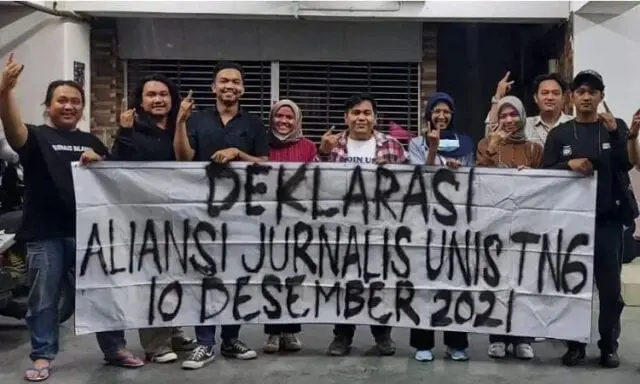 DEKLARASI
ALIANSI JURNALIS UNIS TNG
10 DESEMBER 2021